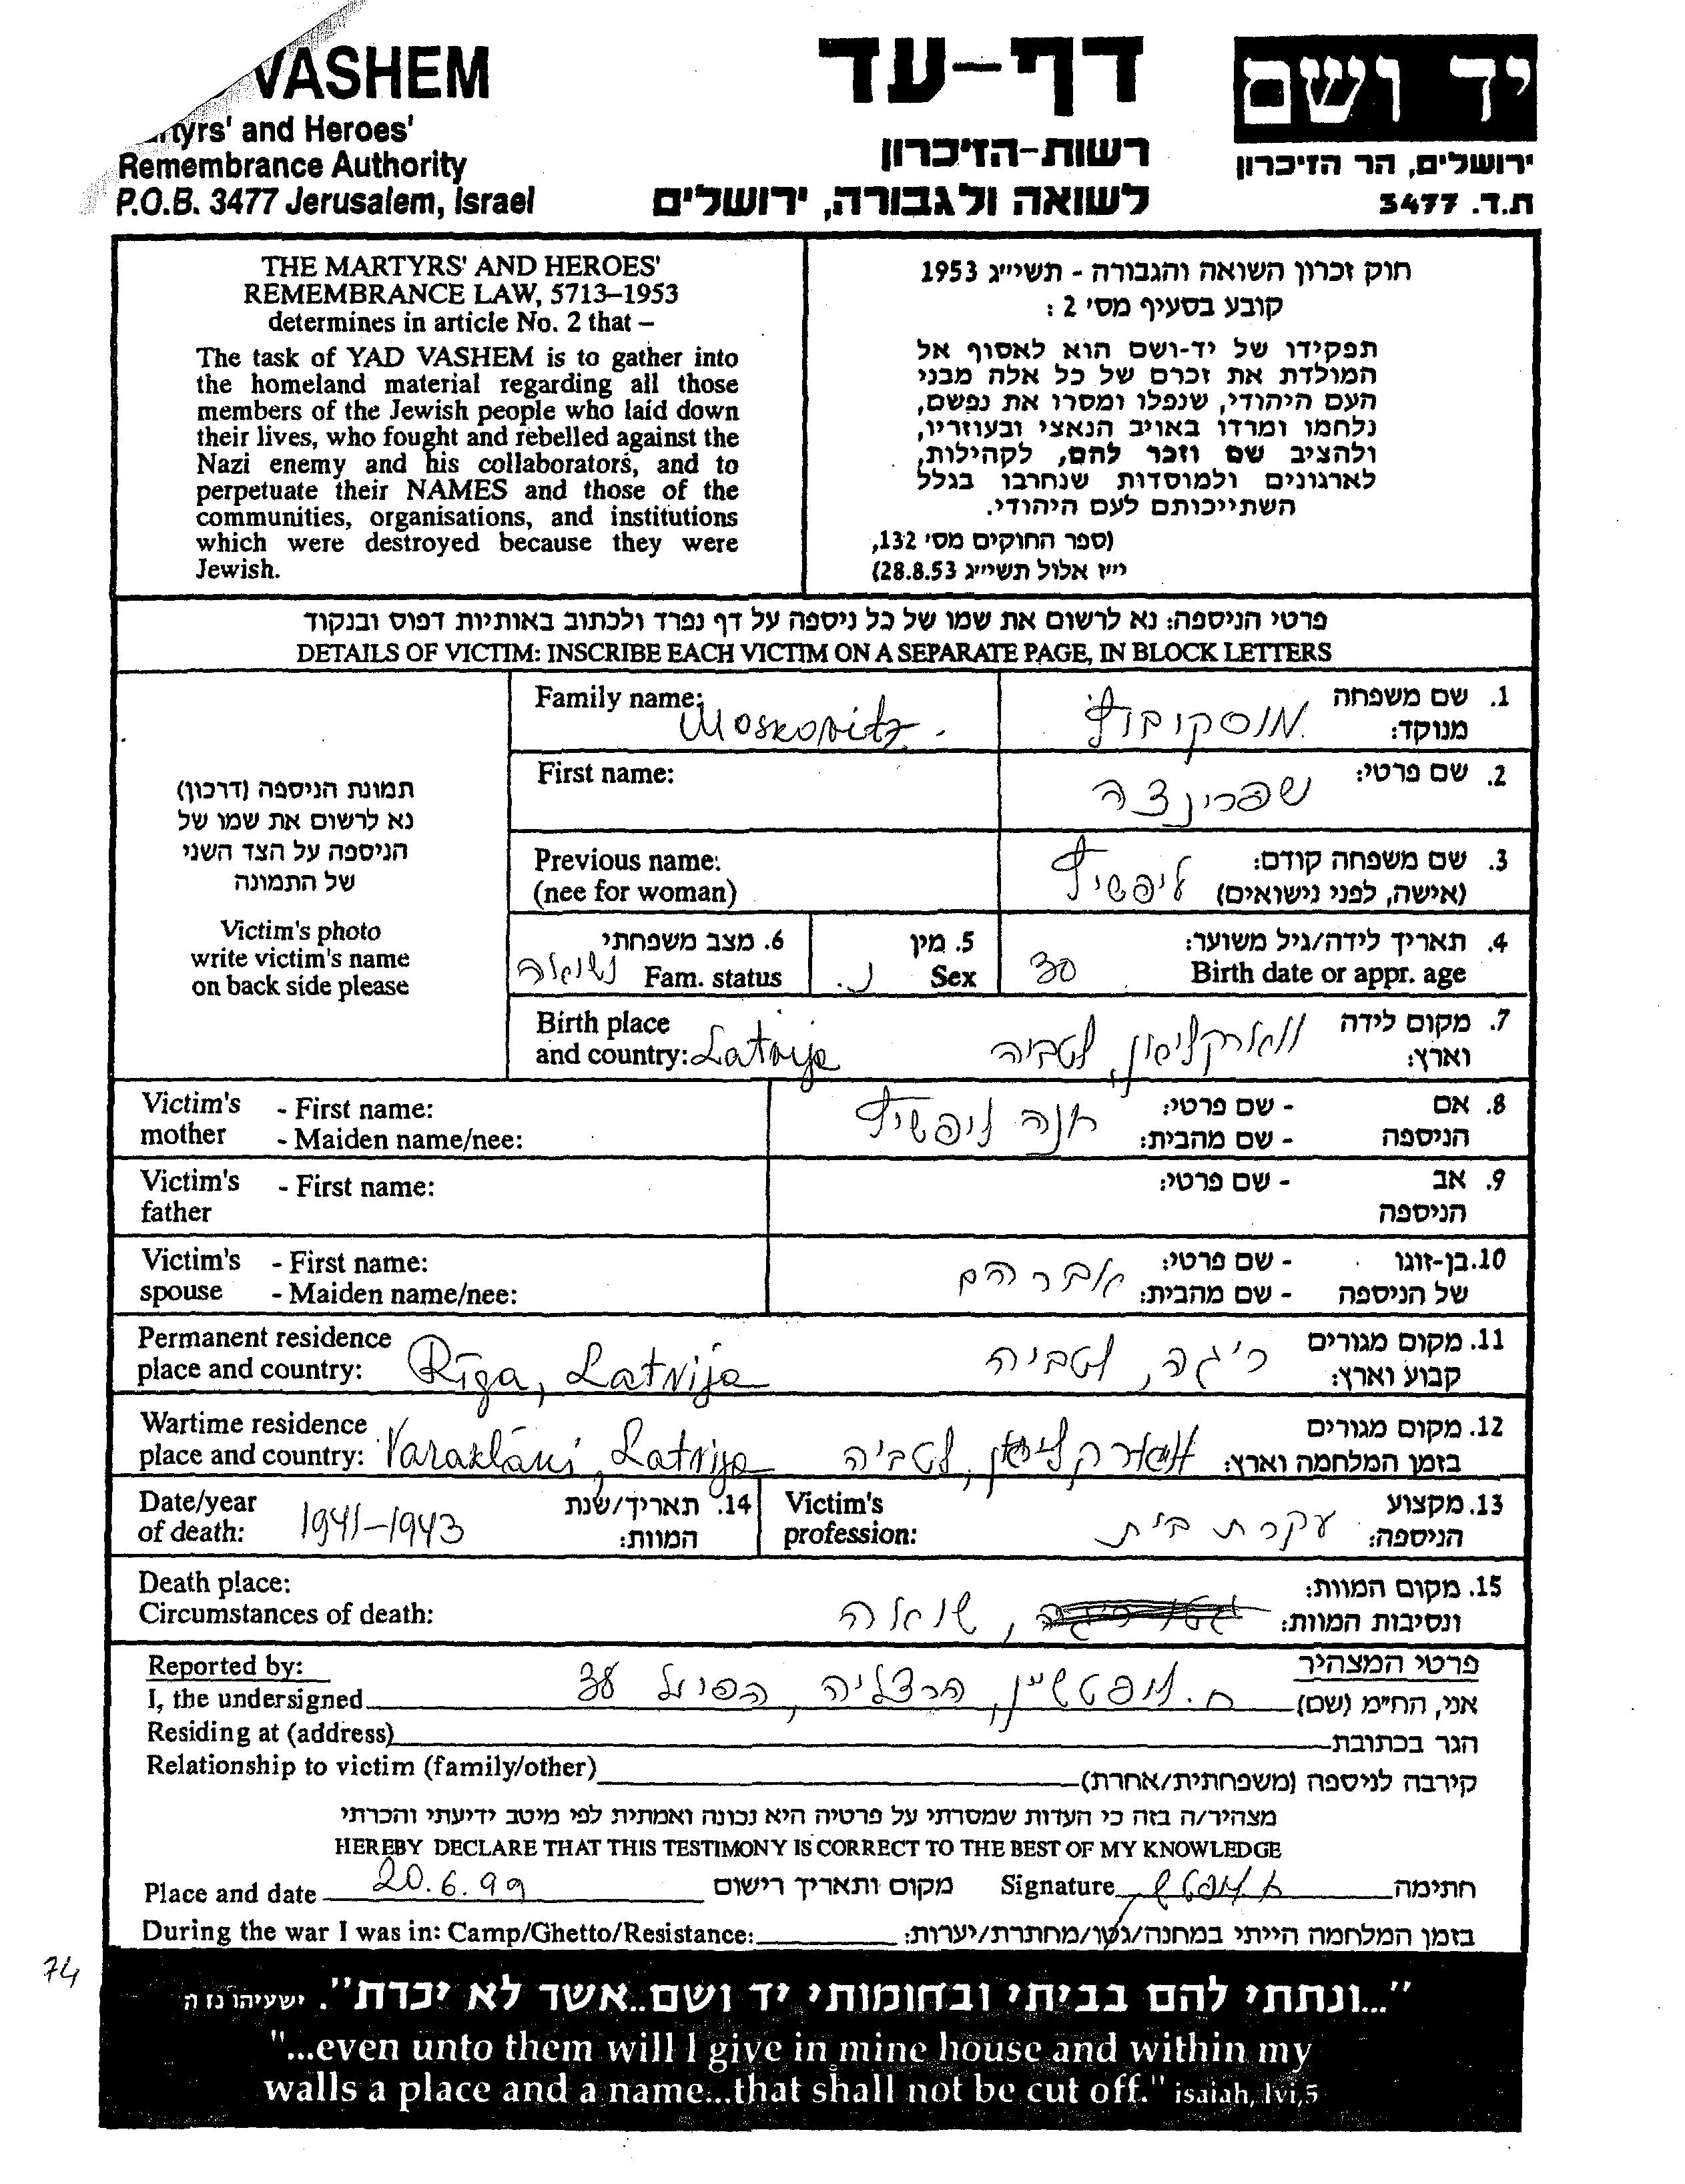 VASHEM
and Heroes'
Remembrance Authority
P.O.B. 3477 Jerusalem, Israel
דף-עד
רשות-הזיכרון
לשואה ולגבורה, ירושלים
יד ושם
ירושלים, הר הזיכרון
ת.ד. 3477
THE MARTYRS' AND HEROES'
REMEMBRANCE LAW, 5713–1953
determines in article No. 2 that –
The task of YAD VASHEM is to gather into
the homeland material regarding all those
members of the Jewish people who laid down
their lives, who fought and rebelled against the
Nazi enemy and his collaborators, and to
perpetuate their NAMES and those of the
communities, organisations, and institutions
which were destroyed because they were
Jewish.
חוק זכרון השואה והגבורה - תשי״ג 1953
קובע בסעיף מס' 2 :
תפקידו של יד-ושם הוא לאסוף אל
המולדת את זכרם של כל אלה מבני
העם היהודי, שנפלו ומסרו את נפשם,
נלחמו ומרדו באויב הנאצי ובעוזריו,
ולהציב שם וזכר להם, לקהילות,
לארגונים ולמוסדות שנחרבו בגלל
השתייכותם לעם היהודי.
(ספר החוקים מס' 132,
י״ז אלול תשי״ג 28.8.53)
פרטי הניספה: נא לרשום את שמו של כל ניספה על דף נפרד ולכתוב באותיות דפוס ובנקוד
DETAILS OF VICTIM: INSCRIBE EACH VICTIM ON A SEPARATE PAGE, IN BLOCK LETTERS
תמונת הניספה (דרכון)
נא לרשום את שמו של
הניספה על הצד השני
של התמונה
Victim's photo
write victim's name
on back side please
Family name: Moskovitz. מוסקוביץ 1. שם משפחה
מנוקד:
First name: שפרינצה 2. שם פרטי:
Previous name: ליפשיץ 3. שם משפחה קודם:
(nee for woman) (אישה, לפני נישואים)
6. מצב משפחתי 5. מין 4. תאריך לידה/גיל משוער:
נשואה Fam. status נ. Sex 30 Birth date or appr. age
Birth place 7. מקום לידה
and country: Latvija ווארקליאן, לטביה וארץ:
Victim's - First name: חנה ליפשיץ - שם פרטי: 8. אם
mother - Maiden name/nee: - שם מהבית: הניספה
Victim's - First name: - שם פרטי: 9. אב
father הניספה
Victim's - First name: אברהם - שם פרטי: 10. בן-זוגו
spouse - Maiden name/nee: - שם מהבית: של הניספה
Permanent residence 11. מקום מגורים
place and country: Rīga, Latvija ריגה, לטביה קבוע וארץ:
Wartime residence 12. מקום מגורים
place and country: Varakļāni, Latvija ווארקליאן, לטביה בזמן המלחמה וארץ:
Date/year 14. תאריך/שנת Victim's 13. מקצוע
of death: 1941-1943 המוות: profession: עקרת בית הניספה:
Death place: 15. מקום המוות:
Circumstances of death: שואה, ונסיבות המוות:
Reported by: פרטי המצהיר
I, the undersigned ח. ליפשטיין, הרצליה, הסיגל 38 אני, הח״מ (שם)
Residing at (address) הגר בכתובת
Relationship to victim (family/other) קירבה לניספה (משפחתית/אחרת)
מצהיר/ה בזה כי העדות שמסרתי על פרטיה היא נכונה ואמתית לפי מיטב ידיעתי והכרתי
HEREBY DECLARE THAT THIS TESTIMONY IS CORRECT TO THE BEST OF MY KNOWLEDGE
Place and date 20.6.99 מקום ותאריך רישום Signature חתימה
During the war I was in: Camp/Ghetto/Resistance: בזמן המלחמה הייתי במחנה/גטו/מחתרת/יערות:
74
"...ונתתי להם בביתי ובחומותי יד ושם..אשר לא יכרת". ישעיהו נז ה
"...even unto them will I give in mine house and within my
walls a place and a name...that shall not be cut off." isaiah, lvi,5